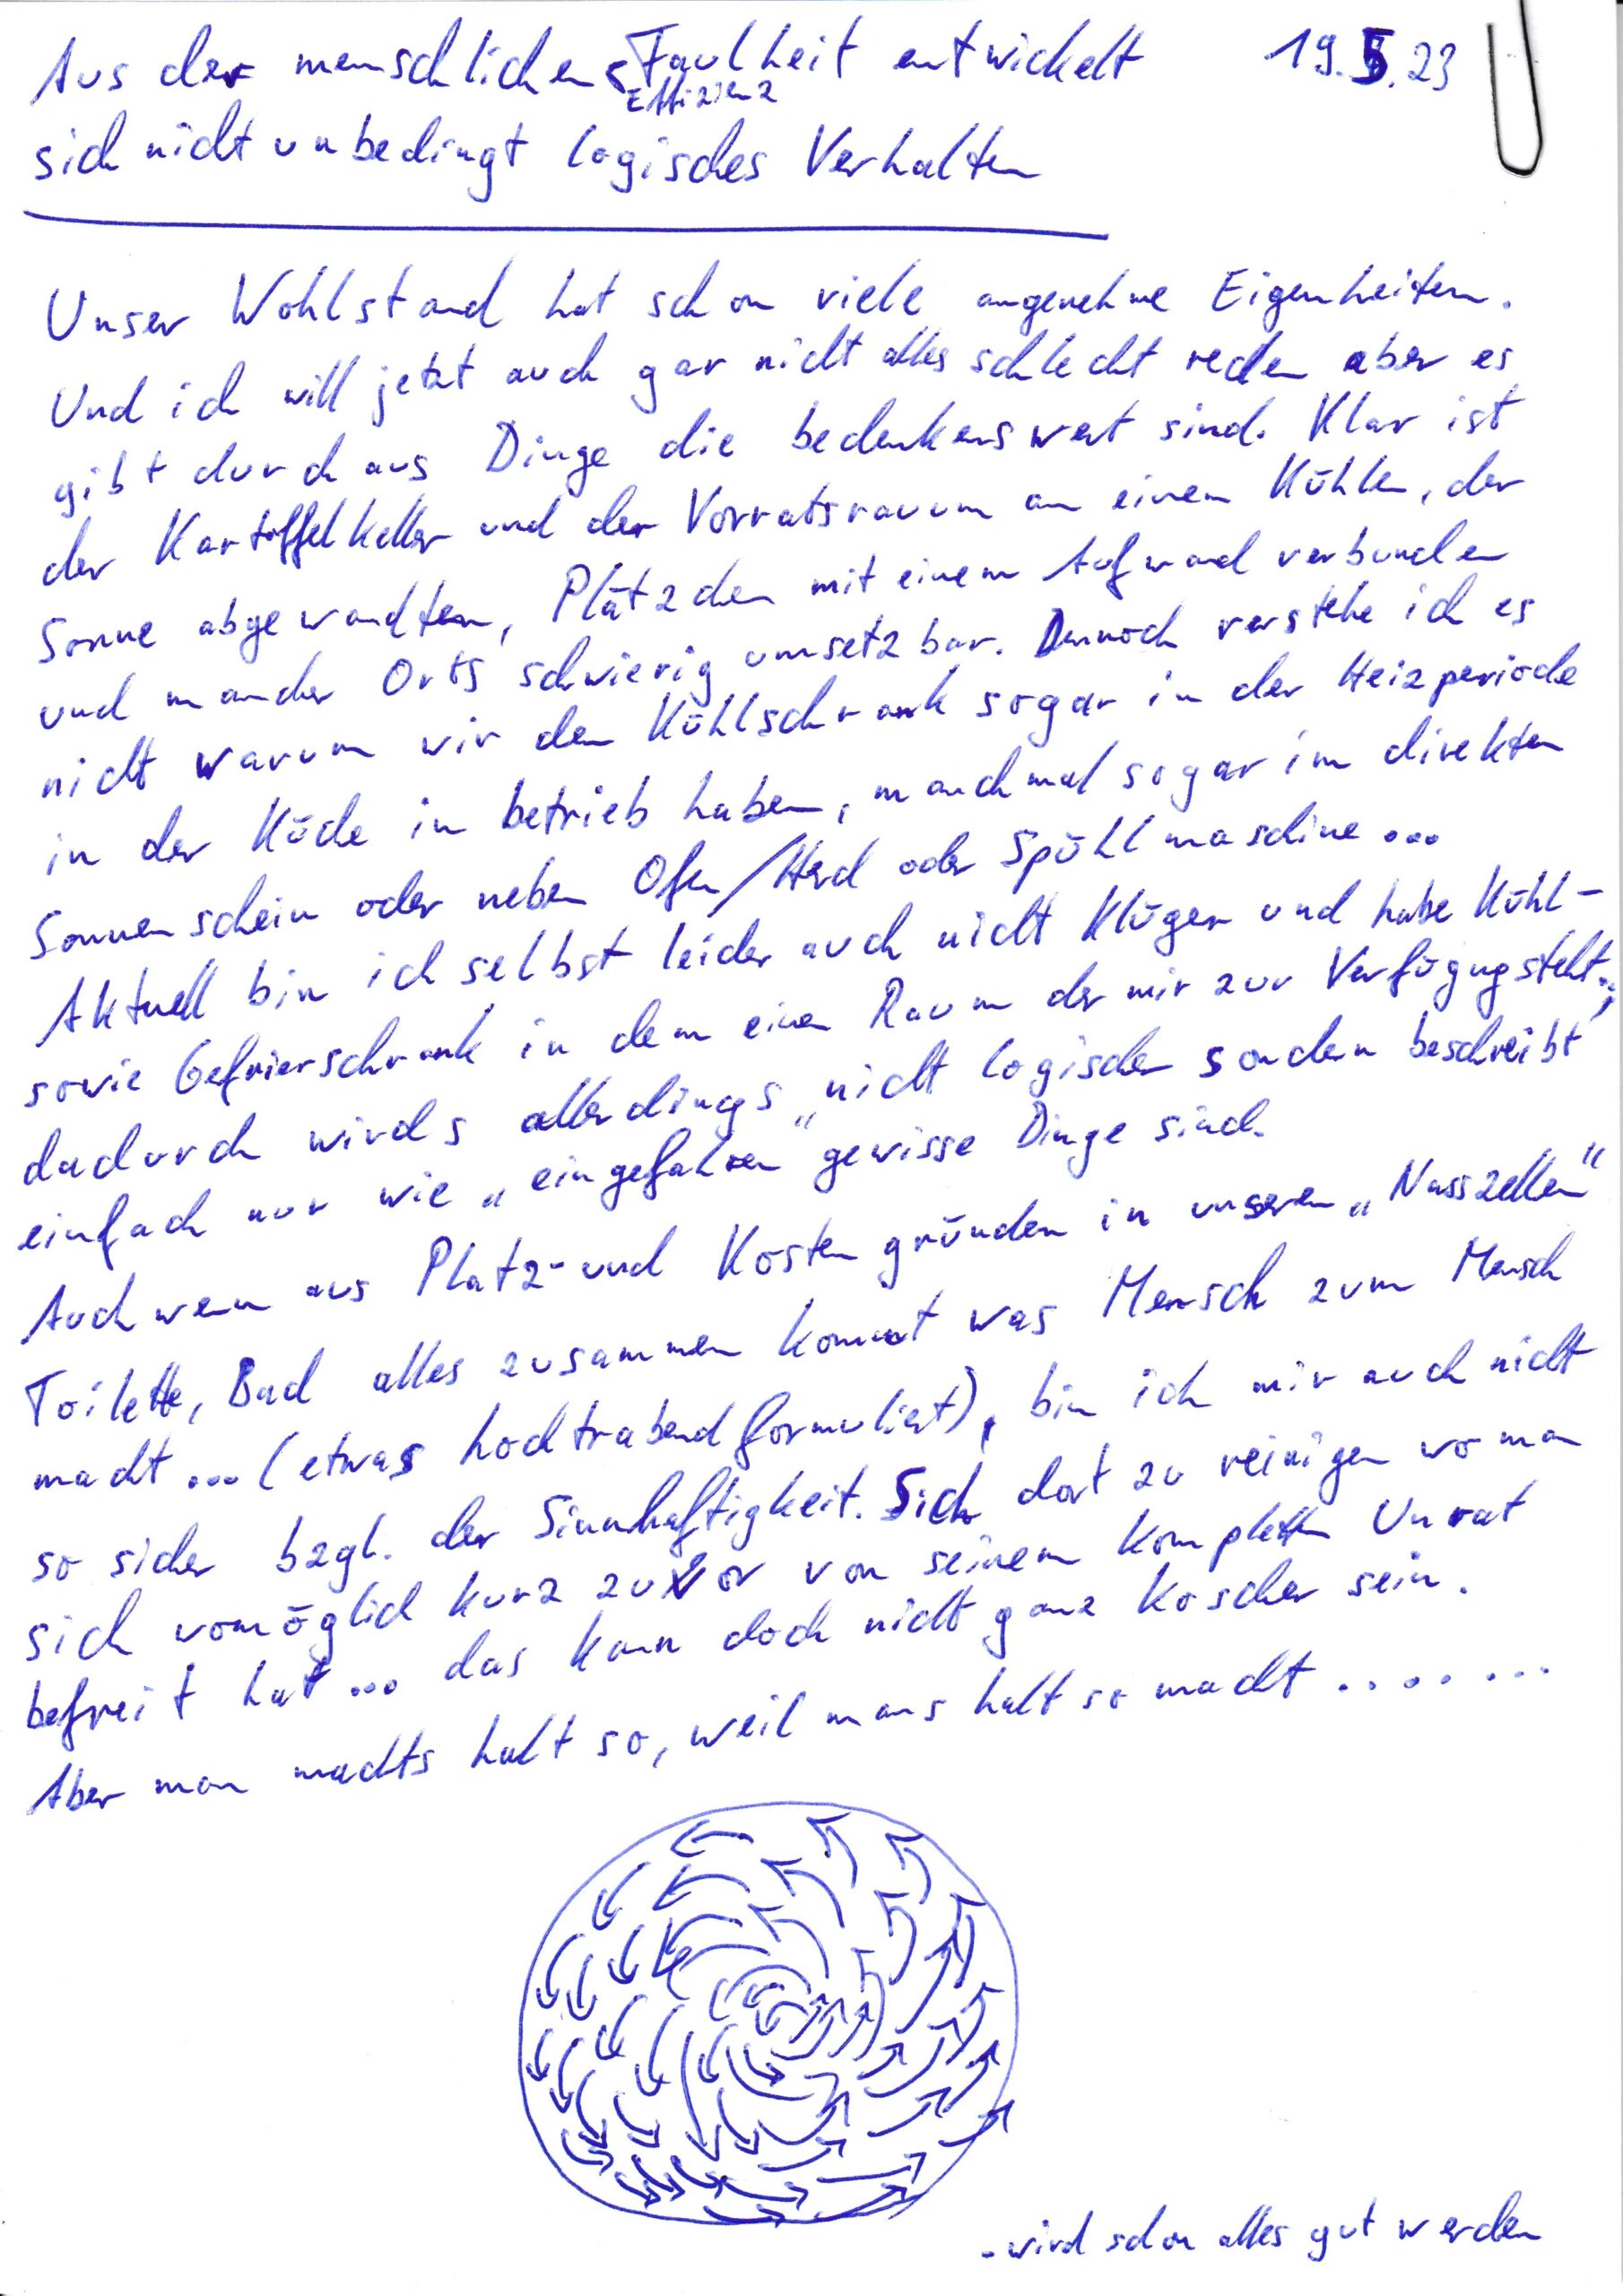 Aus der menschlichen Faulheit entwickelt 19.5.23
Effizienz
sich nicht unbedingt logisches Verhalten
Unser Wohlstand hat schon viele angenehme Eigenheiten.
Und ich will jetzt auch gar nicht alles schlecht reden aber es
gibt durchaus Dinge die bedenkenswert sind. Klar ist
der Kartoffelkeller und der Vorratsraum an einem Kühlen, der
Sonne abgewandten, Plätzchen mit einem Aufwand verbunden
und mancher Orts schwierig umsetzbar. Dennoch verstehe ich es
nicht warum wir den Kühlschrank sogar in der Heizperiode
in der Küche in betrieb haben, manchmal sogar im direkten
Sonnenschein oder neben Ofen/Herd oder Spühlmaschine...
Aktuell bin ich selbst leider auch nicht Klüger und habe Kühl-
sowie Gefrierschrank in dem einen Raum der mir zur Verfügug steht.;
dadurch wirds allerdings „nicht logischer sondern beschreibt
einfach nur wie „eingefahren" gewisse Dinge sind.
Auch wenn aus Platz- und Kosten gründen in unseren „Nasszellen"
Toilette, Bad alles zusammen kommt was Mensch zum Mensch
macht... (etwas hochtrabend formuliert), bin ich mir auch nicht
so sicher bzgl. der Sinnhaftigkeit. Sich dort zu reinigen wo man
sich womöglich kurz zuvor von seinem kompletten Unrat
befreit hat... das kann doch nicht ganz koscher sein.
Aber man machts halt so, weil mans halt so macht ........
- wird schon alles gut werden